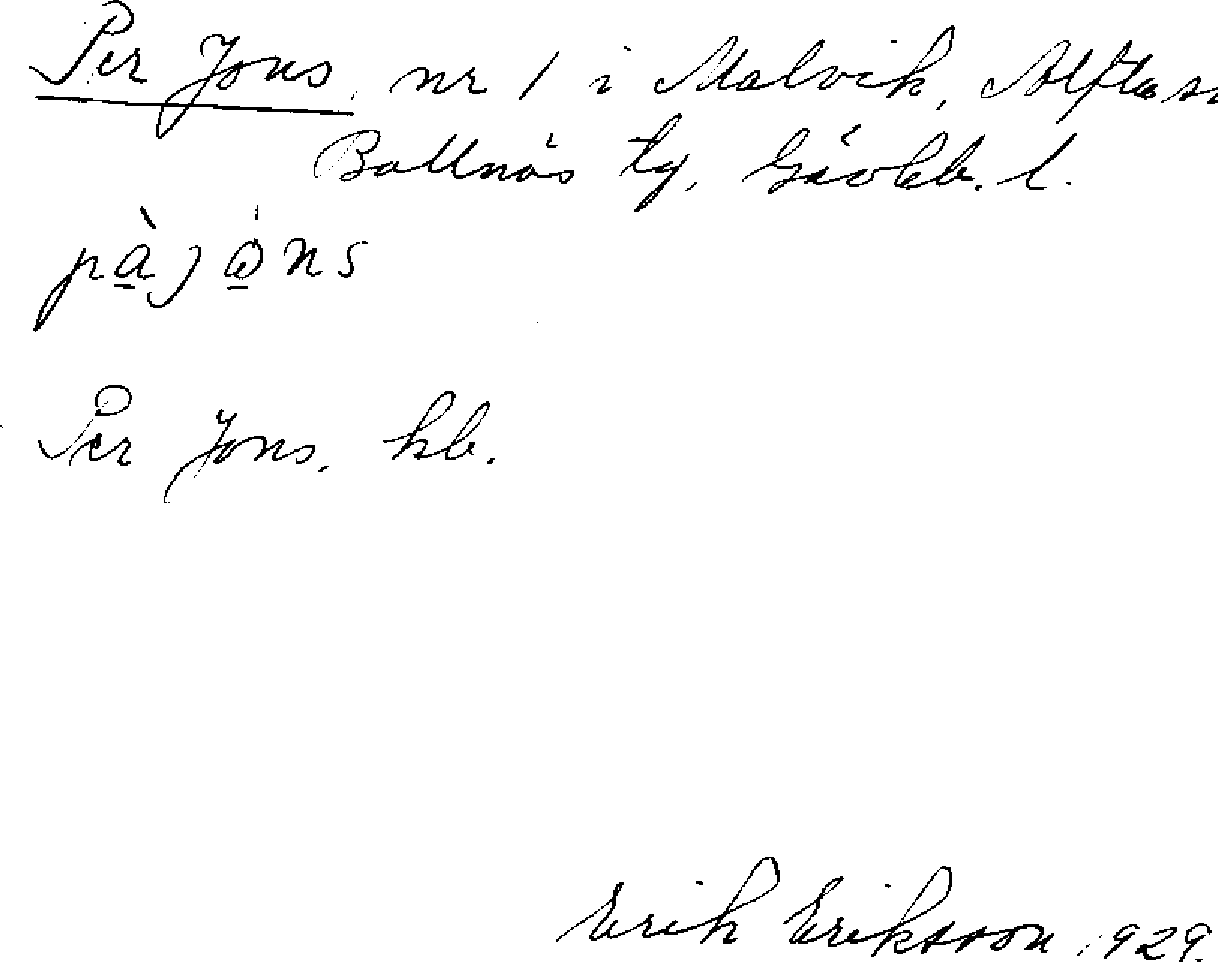 Per Jons, nr 1 i Malvik, Alfta sn
Bollnäs tg, Gävleb. l.
pàjo̠ns
Per Jons, kb.
Erik Eriksson 1929.